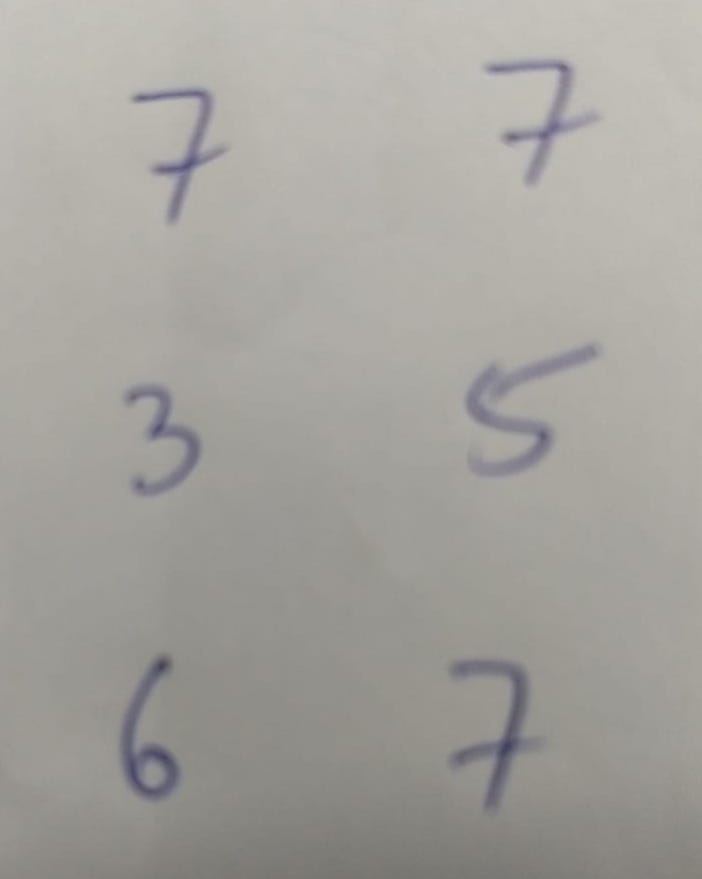 7 7
3 5
6 7